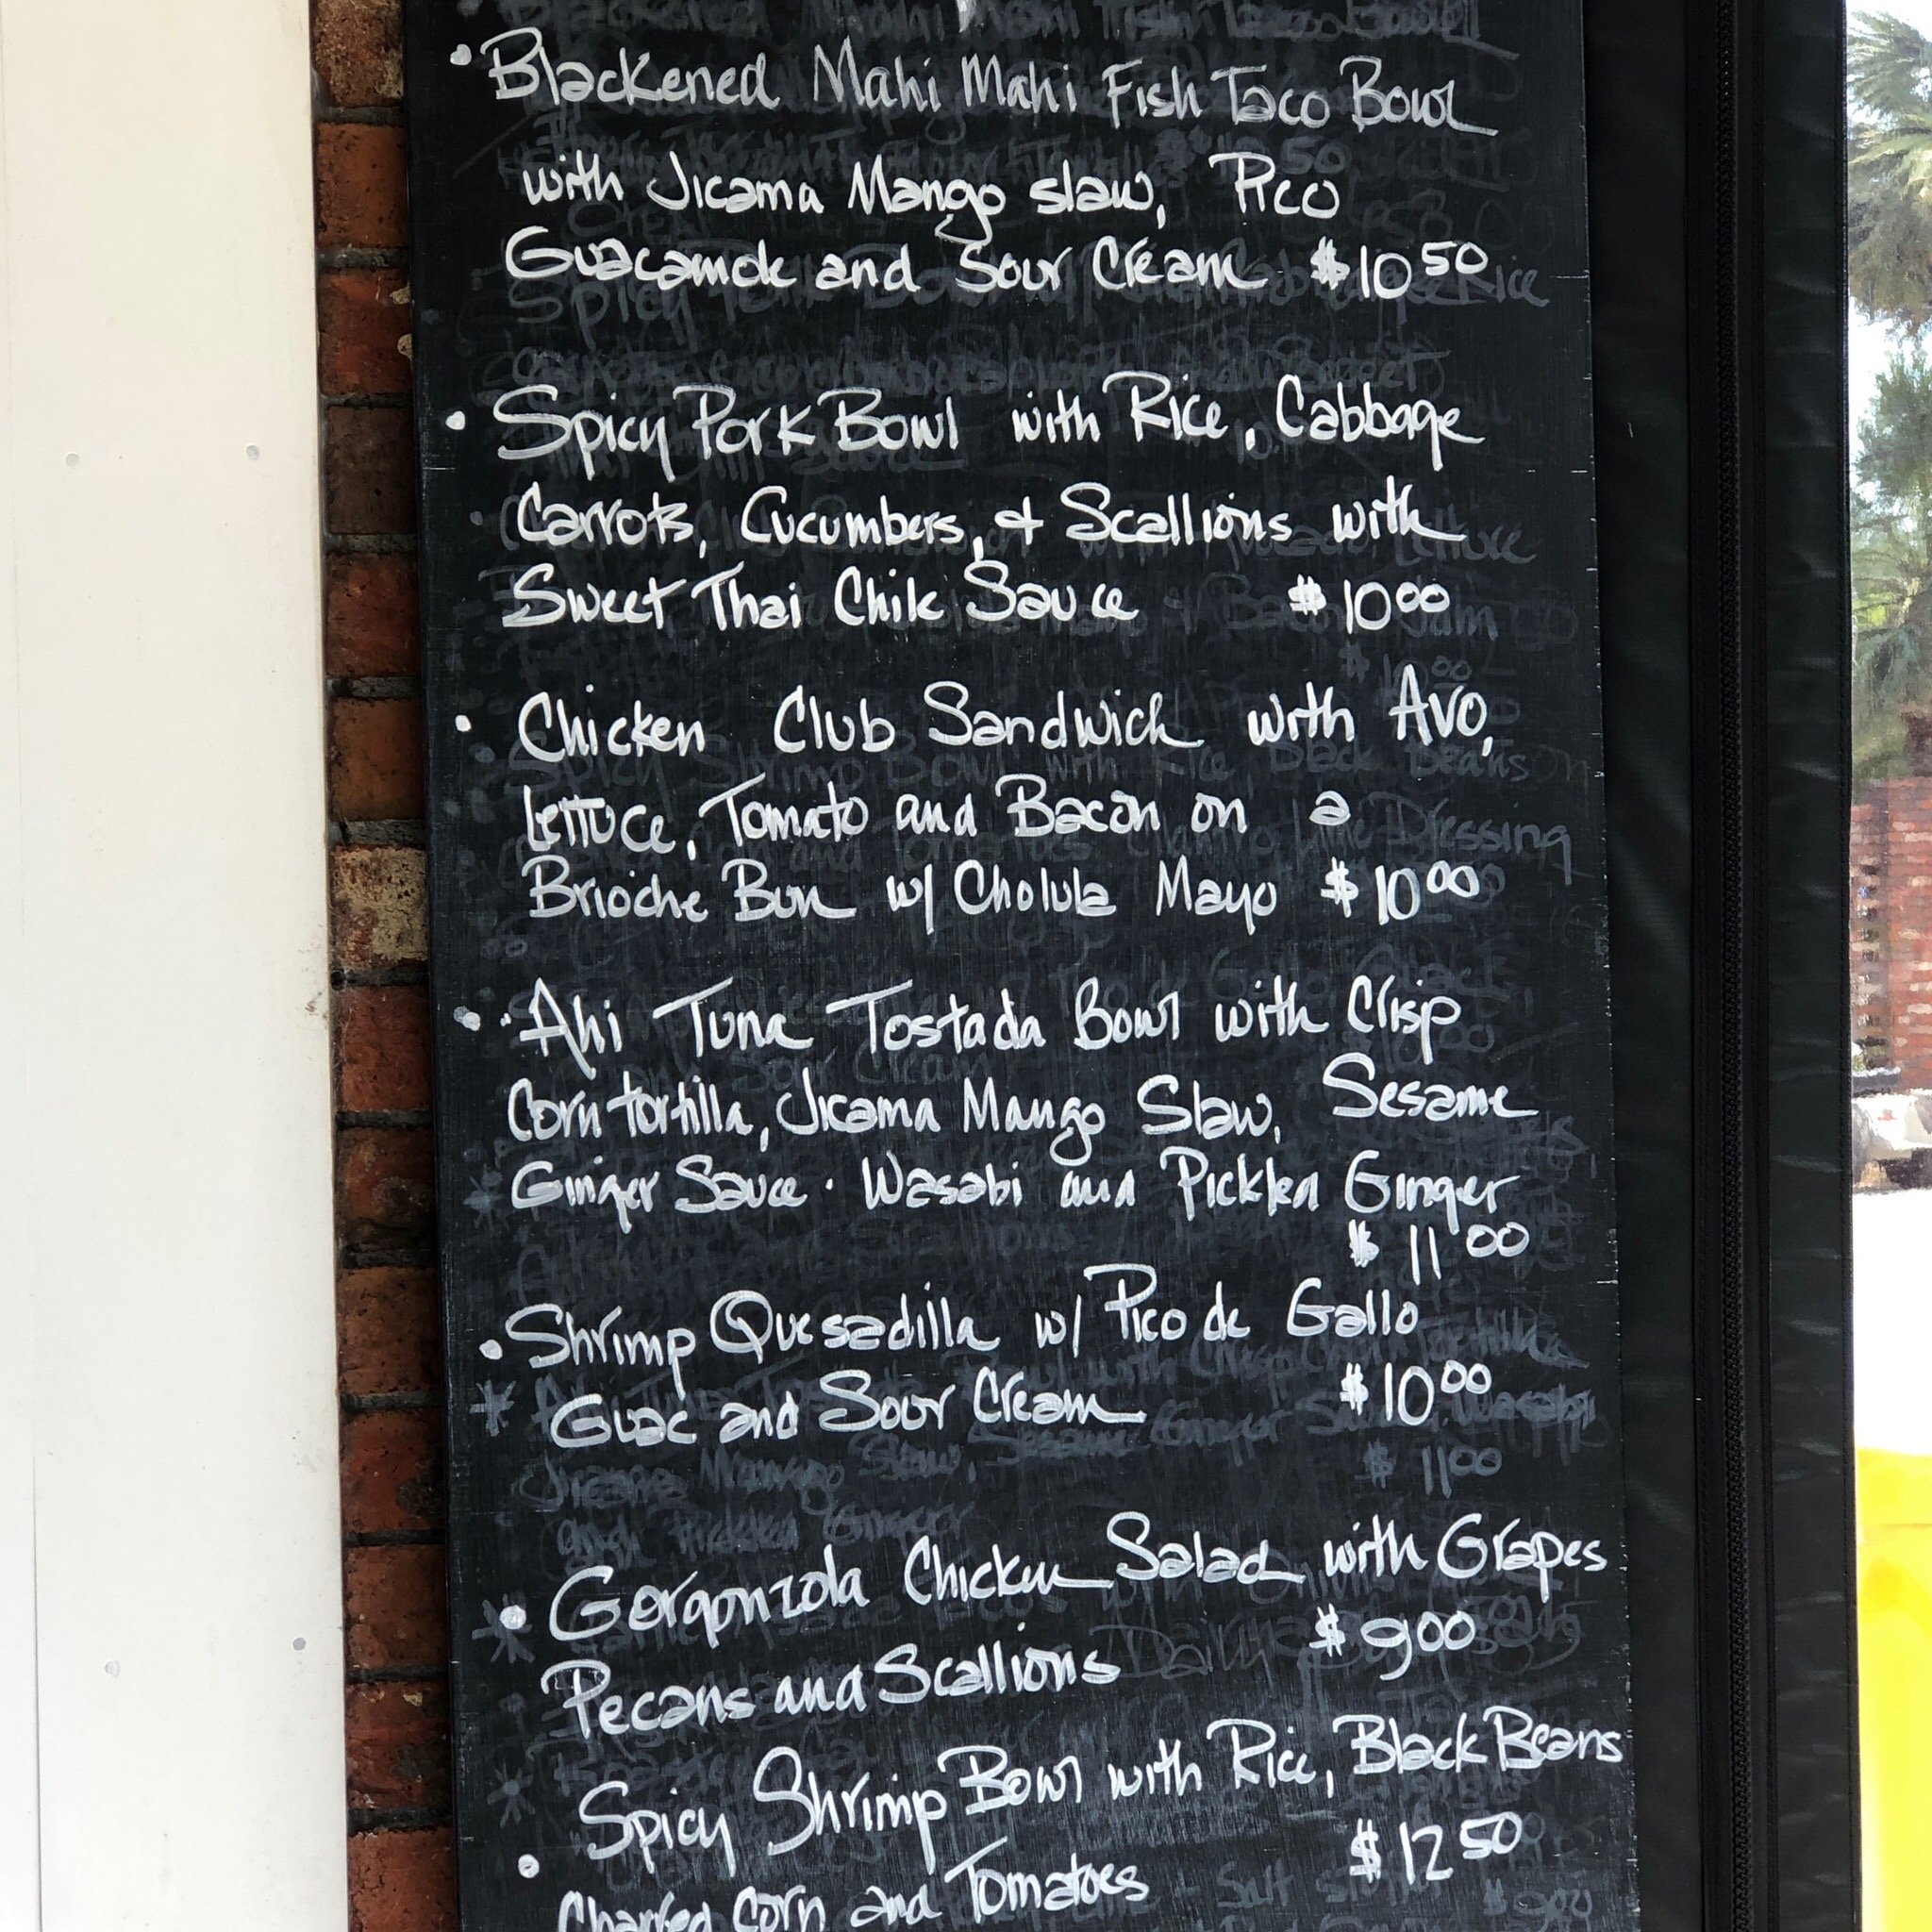 • Blackened Mahi Mahi Fish Taco Bowl
with Jicama Mango slaw, Pico
Guacamole and Sour Cream $10 50
• Spicy Pork Bowl with Rice, Cabbage
Carrots, Cucumbers, & Scallions with
Sweet Thai Chile Sauce $10 00
• Chicken Club Sandwich with Avo,
Lettuce, Tomato and Bacon on a
Brioche Bun w/ Cholula Mayo $10 00
• Ahi Tuna Tostada Bowl with Crisp
Corn tortilla, Jicama Mango Slaw, Sesame
Ginger Sauce · Wasabi and Pickled Ginger
$11 00
• Shrimp Quesadilla w/ Pico de Gallo
Guac and Sour Cream $10 00
• Gorgonzola Chicken Salad with Grapes
Pecans and Scallions $9 00
• Spicy Shrimp Bowl with Rice, Black Beans
Charred Corn and Tomatoes $12 50